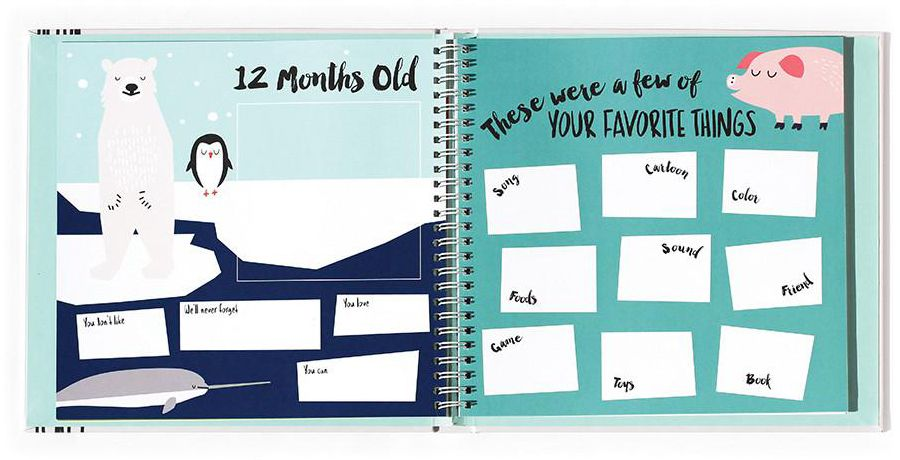 12 Months Old
You don't like
We'll never forget
You love
You can
These were a few of
YOUR FAVORITE THINGS
Song
Cartoon
Color
Foods
Sound
Friend
Game
Toys
Book